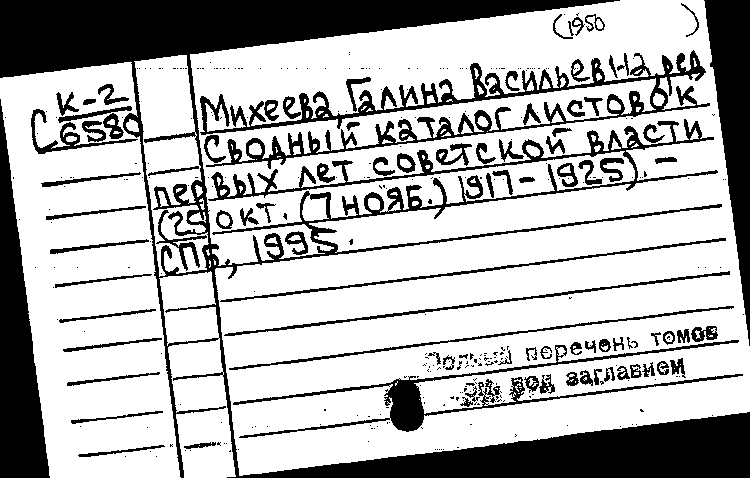 (1950 )
К-2
С 6580
Михеева, Галина Васильевна, ред.
Сводный каталог листовок
первых лет советской власти
(25 окт. (7 нояб.) 1917-1925). -
СПБ., 1995.
Полный перечень томов
см. под заглавием